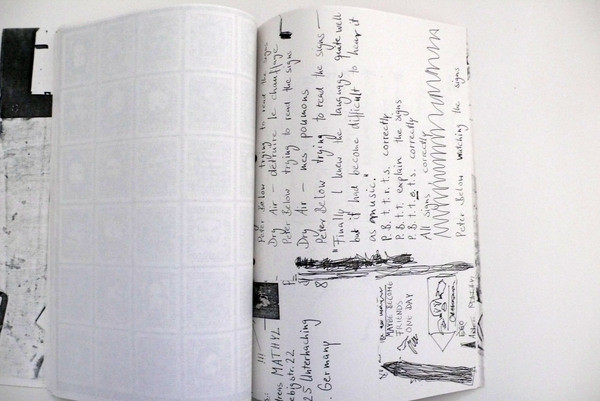 Peter Below trying to read the signs
Dry Air – détruire le chauffage
Peter Below trying to read the signs
Dry Air – mes poumons
Peter Below trying to read the signs –
"Finally I knew the language quite well
but it had become difficult to hear it
as music."
P. B. t. t. r. t. s. correctly
P. B. t. t. explain the signs
P. B. t. t. e. t. s. correctly
All signs correctly
Peter Below watching the signs
MATHYL
str. 22
25 Unterhaching
Germany
MAYBE BECOME
FRIENDS
ONE DAY